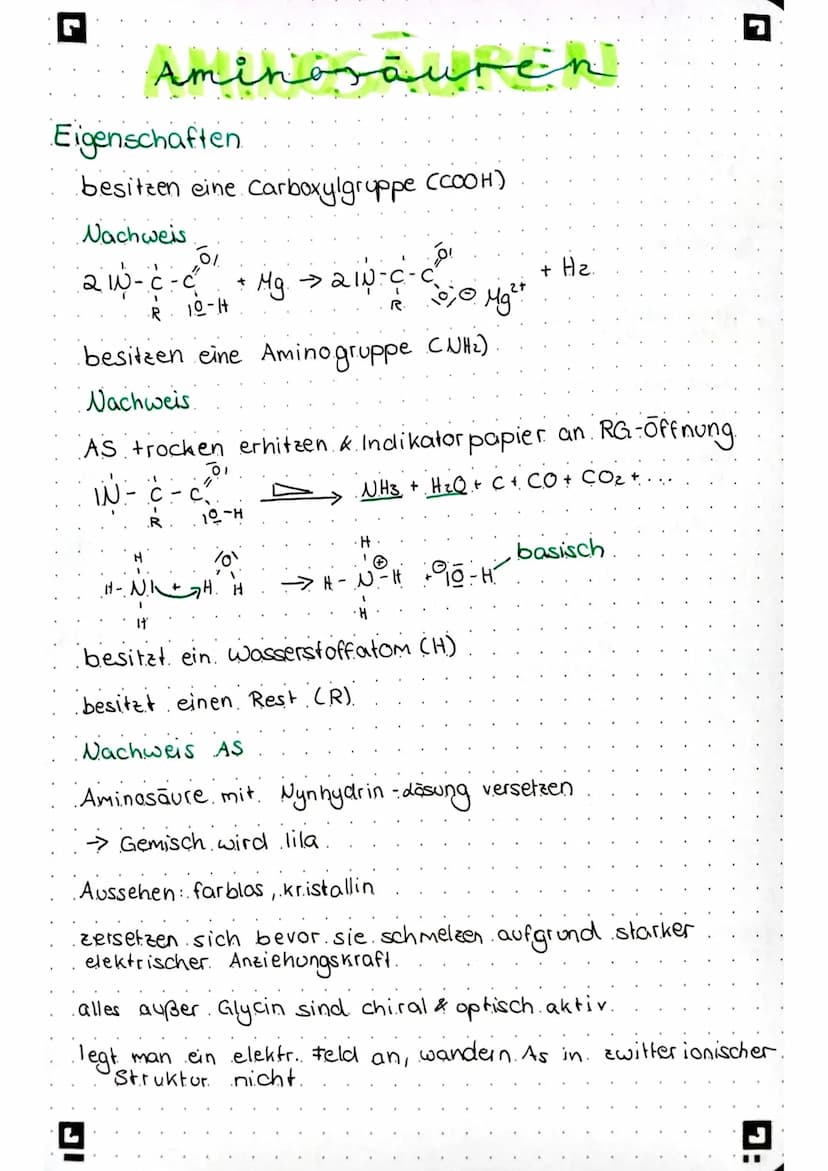 Aminosäuren
Eigenschaften
besitzen eine Carboxylgruppe (COOH)
Nachweis
2 IN-C-C O I + Mg → 2 IN-C-C O I + H2
R IO-H R IOI⊖ Mg2+
besitzen eine Aminogruppe (NH2)
Nachweis
AS trocken erhitzen & Indikatorpapier an RG-Öffnung
IN-C-C O I → NH3 + H2O + C + CO + CO2 + ...
R IO-H
H IOI H basisch
H-NI + H H → H-N⊕-H + ⊖IO-H
H H
besitzt ein Wasserstoffatom (H)
besitzt einen Rest (R)
Nachweis AS
Aminosäure mit Nynhydrin-Lösung versetzen
→ Gemisch wird lila
Aussehen: farblos, kristallin
zersetzen sich bevor sie schmelzen aufgrund starker
elektrischer Anziehungskraft.
alles außer Glycin sind chiral & optisch aktiv.
legt man ein elektr. Feld an, wandern As in zwitterionischer
Struktur nicht.